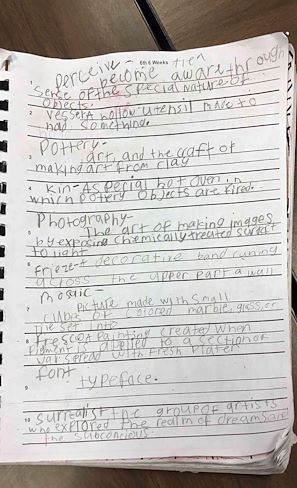 6th 6 Weeks
perceive - tion
become aware through
1 Sense of the special nature of
objects.
2 Vessel A hollow utensil made to
hod something.
Pottery-
3 art, and the craft of
making art from clay
4 Kin- A special hot oven in
which pottery objects are fired.
Photography-
5 The art of making images
by exposing chemically treated surfact
to light
6 frieze- A decorative band running
across the upper part a wall
Mosaic-
7 Picture made with small
cubes of colored marble, glass, or
tile set into
8 fresco A Painting created when
pigment is applied to a section of
wall spread with fresh Plater
font
9 typeface.
10 surrealist the group of artists
who explored the realm of dreams and
the subconcious.